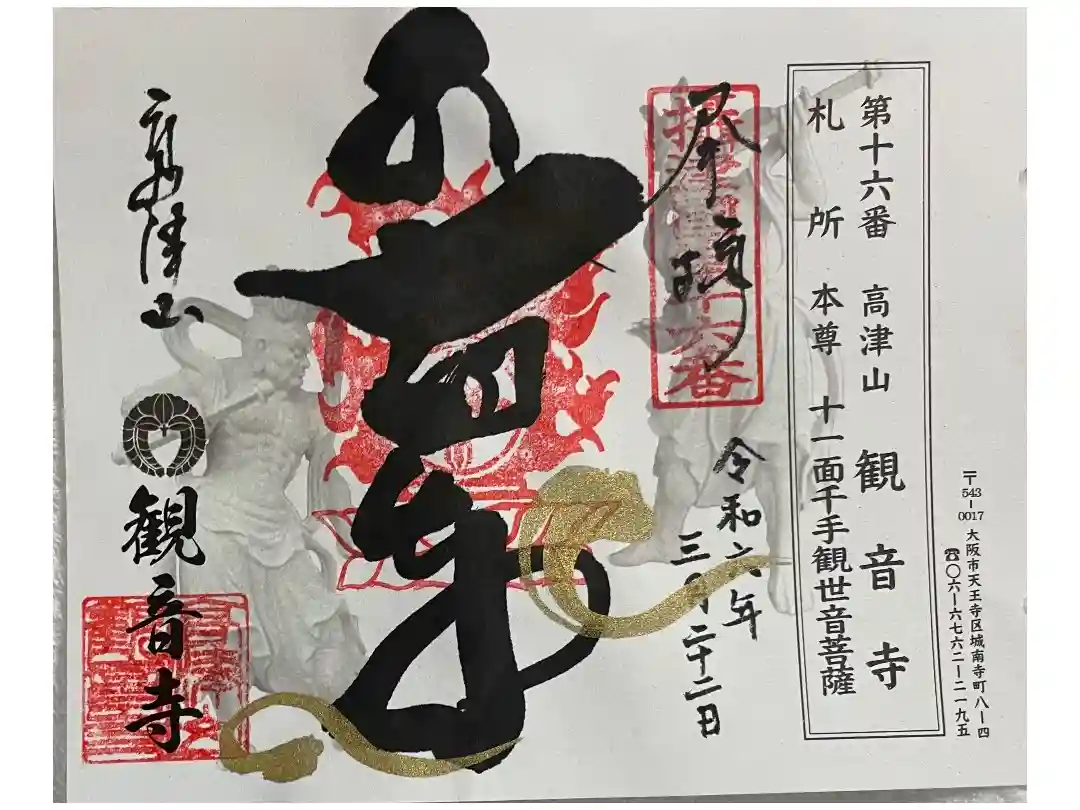 〒543-0017 大阪市天王寺区城南寺町八ー四
☎〇六ー六七六二ー二一九五
第十六番 高津山 観音寺
札所 本尊 十一面千手観世音菩薩
奉拝
摂津国十六番
令和六年
三月二十二日
高津山
観音寺